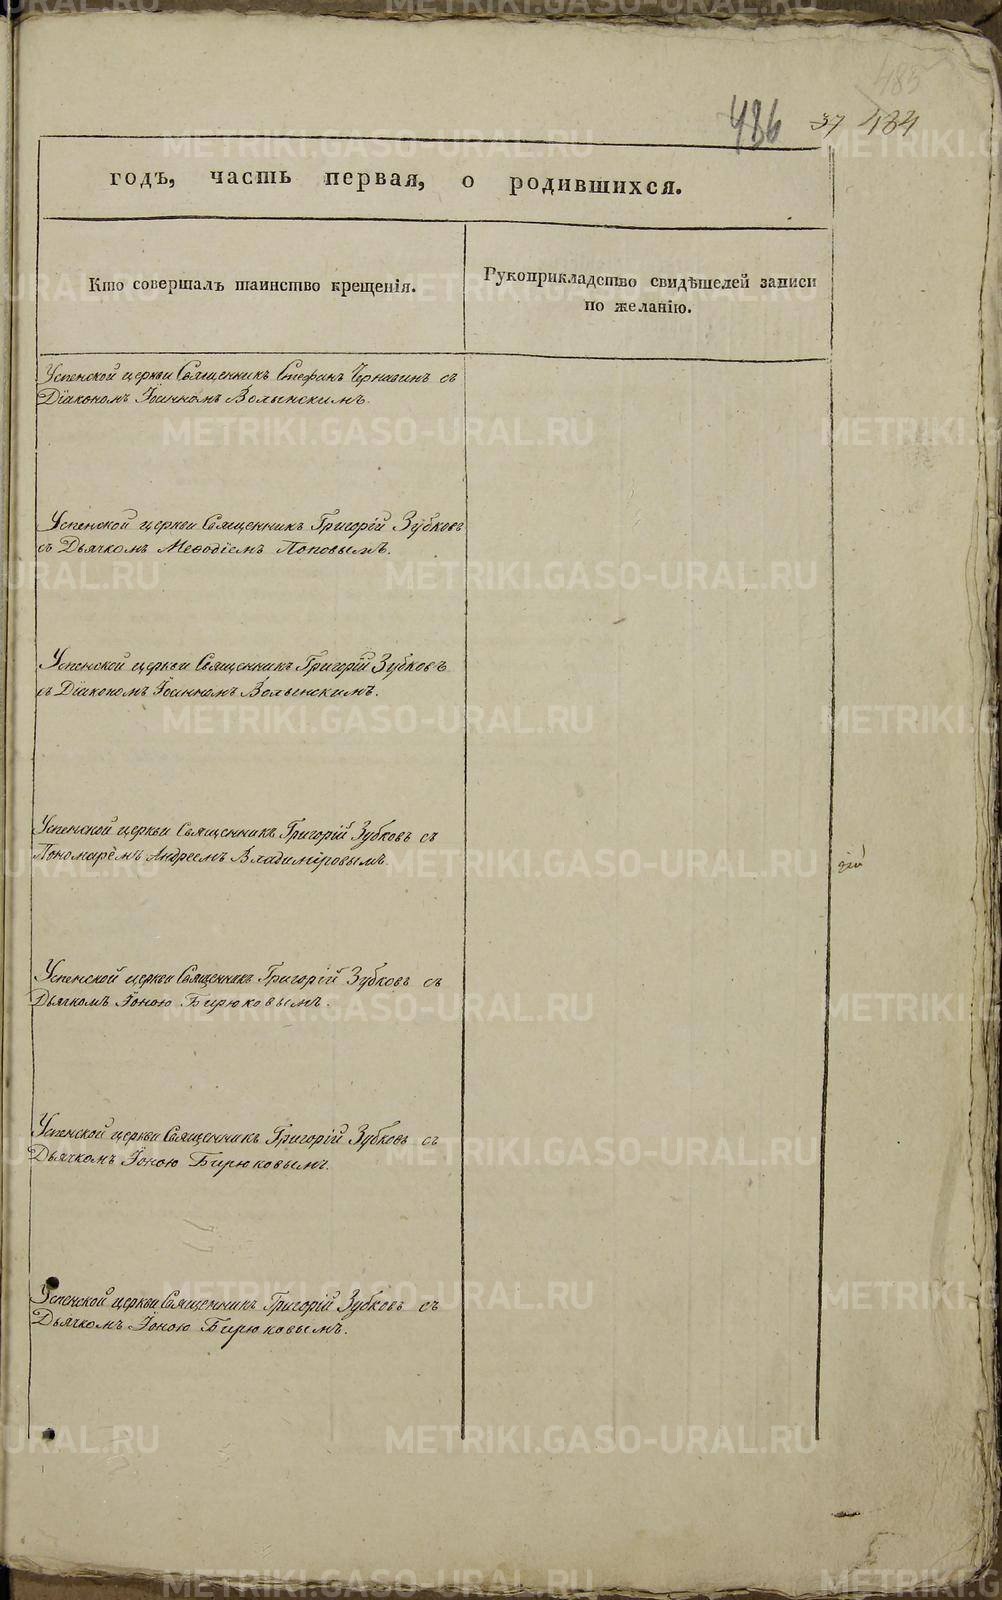 485
486 37 484
годъ, часть первая, о родившихся.
Кто совершалъ таинство крещенія.
Рукоприкладство свидѣтелей записи
по желанію.
Успенской церкви Священникъ Стефанъ Чернавинъ съ
Діакономъ Іоанномъ Волынскимъ.
Успенской церкви Священникъ Григорій Зубковъ
съ Дьячкомъ Меѳодіемъ Поповымъ.
Успенской церкви Священникъ Григорій Зубковъ
съ Діакономъ Іоанномъ Волынскимъ.
Успенской церкви Священникъ Григорій Зубковъ съ
Пономарёмъ Андреемъ Владиміровымъ.
Успенской церкви Священникъ Григорій Зубковъ съ
Дьячкомъ Іоною Бирюковымъ.
Успенской церкви Священникъ Григорій Зубковъ съ
Дьячкомъ Іоною Бирюковымъ.
Успенской церкви Священникъ Григорій Зубковъ съ
Дьячкомъ Іоною Бирюковымъ.
METRIKI.GASO-URAL.RU